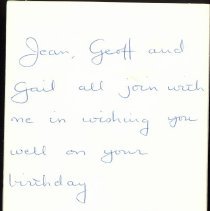 Jean, Geoff and
Gail all join with
me in wishing you
well on your
birthday